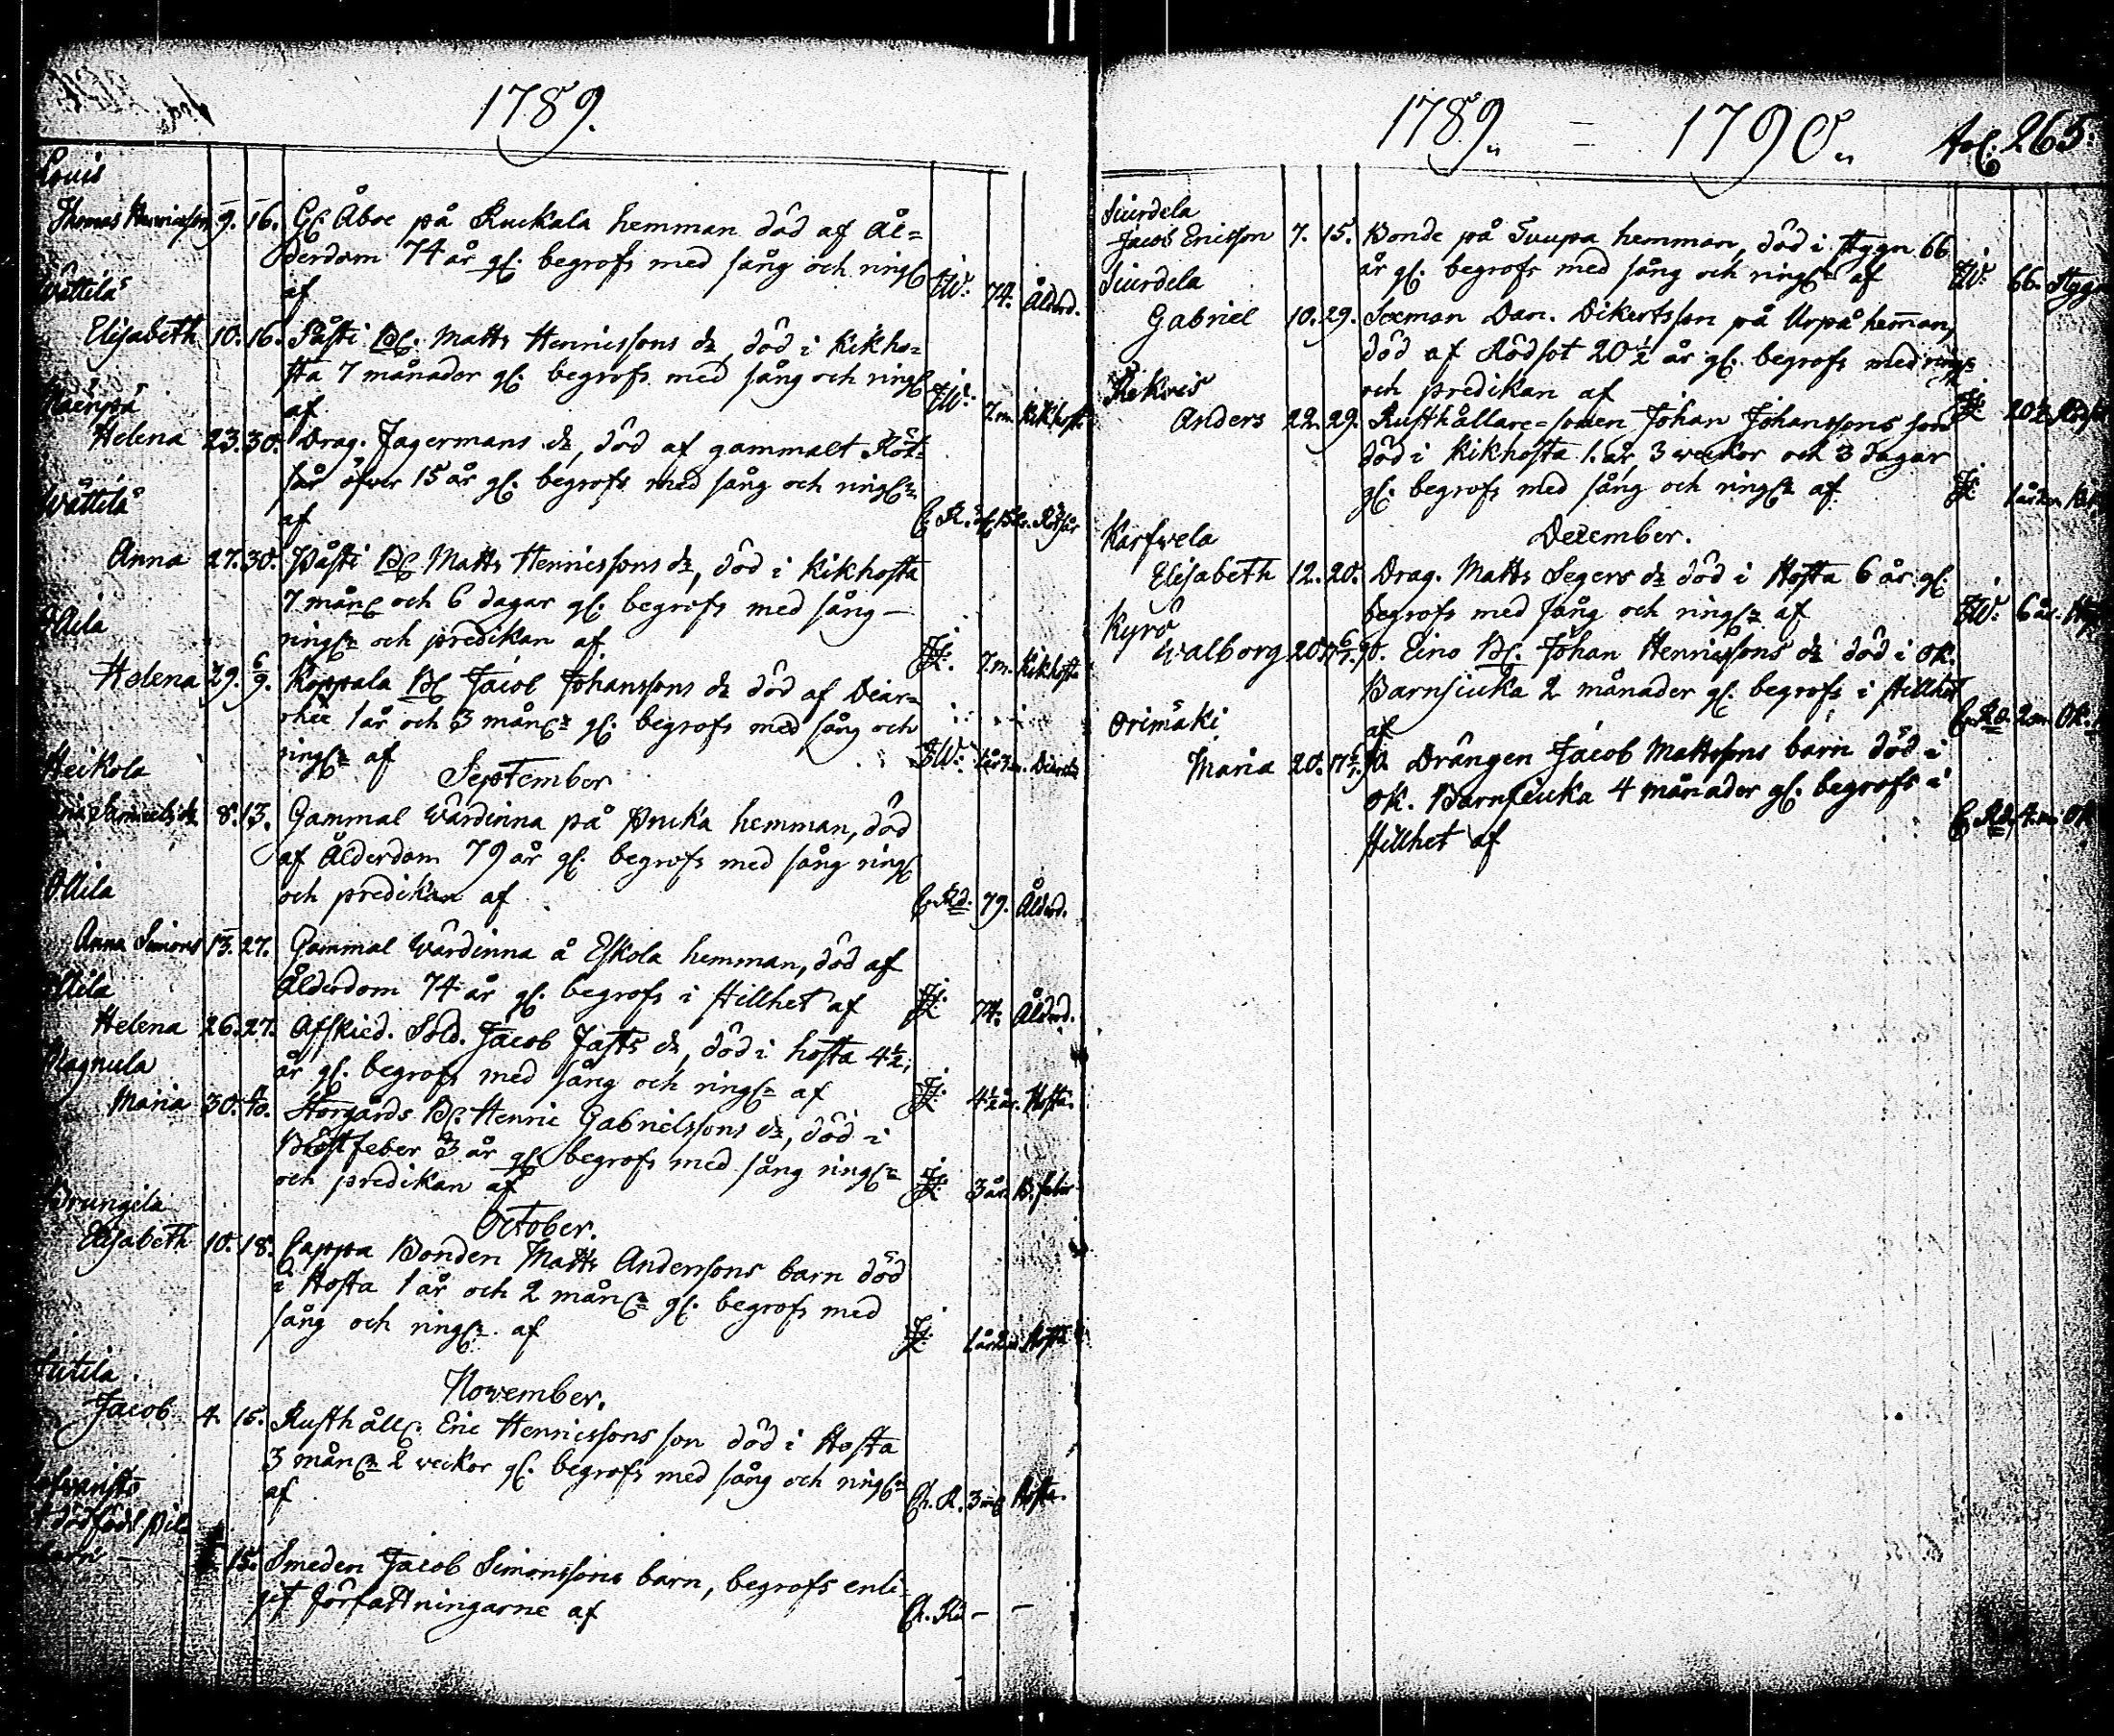 1789.
Louis
Thomas Henricsson 9. 16. Gl. Åboe på Ruckala hemman död af Ål=
derdom 74 år gl. begrofs med sång och ringn:
af JW. 74. Ålderd.
Wättilä
Elisabeth 10. 16. Påsti Bd. Matts Henricssons dr, död i Kikho=
sta 7 månader gl. begrofs med sång och ringn:
af JW. 7 m. Kikhost.
Helena 23. 30. Drag. Jagermans dr, död af gammalt Röt=
sår öfver 15 år gl. begrofs med sång och ringn:
af Rötsår
Wättilä
Anna 27. 30. Påsti Bd. Matts Henricssons dr, död i Kikhosta
7 mån: och 6 dagar gl. begrofs med sång
ringn: och predikan af 7. m. Kikhosta
Helena 29. 6/9. Koppala Bd. Jacob Johanssons dr död af Diar=
rhee 1 år och 3 mån: gl. begrofs med sång och
ringn: af JW. 1 år 3 m.
September
Heikola
8. 13. Gammal Wärdinna på hemman, död
af Ålderdom 79 år gl. begrofs med sång ringn:
och predikan af 79. Ålderd.
Ollila
Anna Simons 13. 27. Gammal Wärdinna å Eskola hemman, död af
Ålderdom 74 år gl. begrofs i stillhet af 74. Ålderd.
Helena 26. 27. Afskied. Sold. Jacob Jasts dr, död i hosta 4 1/2
år gl. begrofs med sång och ringn: af 4 1/2 år. Hosta.
Magnula
Maria 30. Storgårds Bd. Henric Gabrielssons dr, död i
Bröstfeber 3 år gl. begrofs med sång ringn:
och predikan af 3 år B. feber
October.
Elisabeth 10. 18. Cappa Bonden Matts Anderssons barn död
i Hosta 1 år och 2 mån: gl. begrofs med
sång och ringn: af Hosta
November.
Jacob 4. 15. Rusthåll. Eric Henricssons son död i Hosta
3 mån: 2 veckor gl. begrofs med sång och ringn:
af Hosta.
15. Smeden Jacob Simonssons barn, begrofs enli=
git författningarne af
1789. = 1790. Fol. 265.
Siurdela
Jacob Ericsson 7. 15. Bonde på Suupa hemman, död i Stygn 66
år gl. begrofs med sång och ringn: af JW. 66. Stygn
Siurdela
Gabriel 10. 29. Soeman Dan. Dikertsson på Urpå heman,
död af Rödsot 20 1/2 år gl. begrofs med ringn:
och predikan af 20 1/2
Anders 22. 29. Rusthållare=sonen Johan Johanssons son
död i Kikhosta 1. år 3 veckor och 3 dagar
gl. begrofs med sång och ringn: af
December.
Karfwela
Elisabeth 12. 20. Drag. Matts Segers dr död i Hosta 6 år gl.
begrofs med sång och ringn: af JW. 6 år.
Kyrö
Walborg 20. Eino Bd. Johan Henricssons dr död i ok.
Barnsiuka 2 månader gl. begrofs i stillhet
af 2 m. ok.
Orimäki
Maria 20. Drängen Jacob Mattssons barn död i
ok. Barnsiuka 4 månader gl. begrofs i
stillhet af 4 m. ok